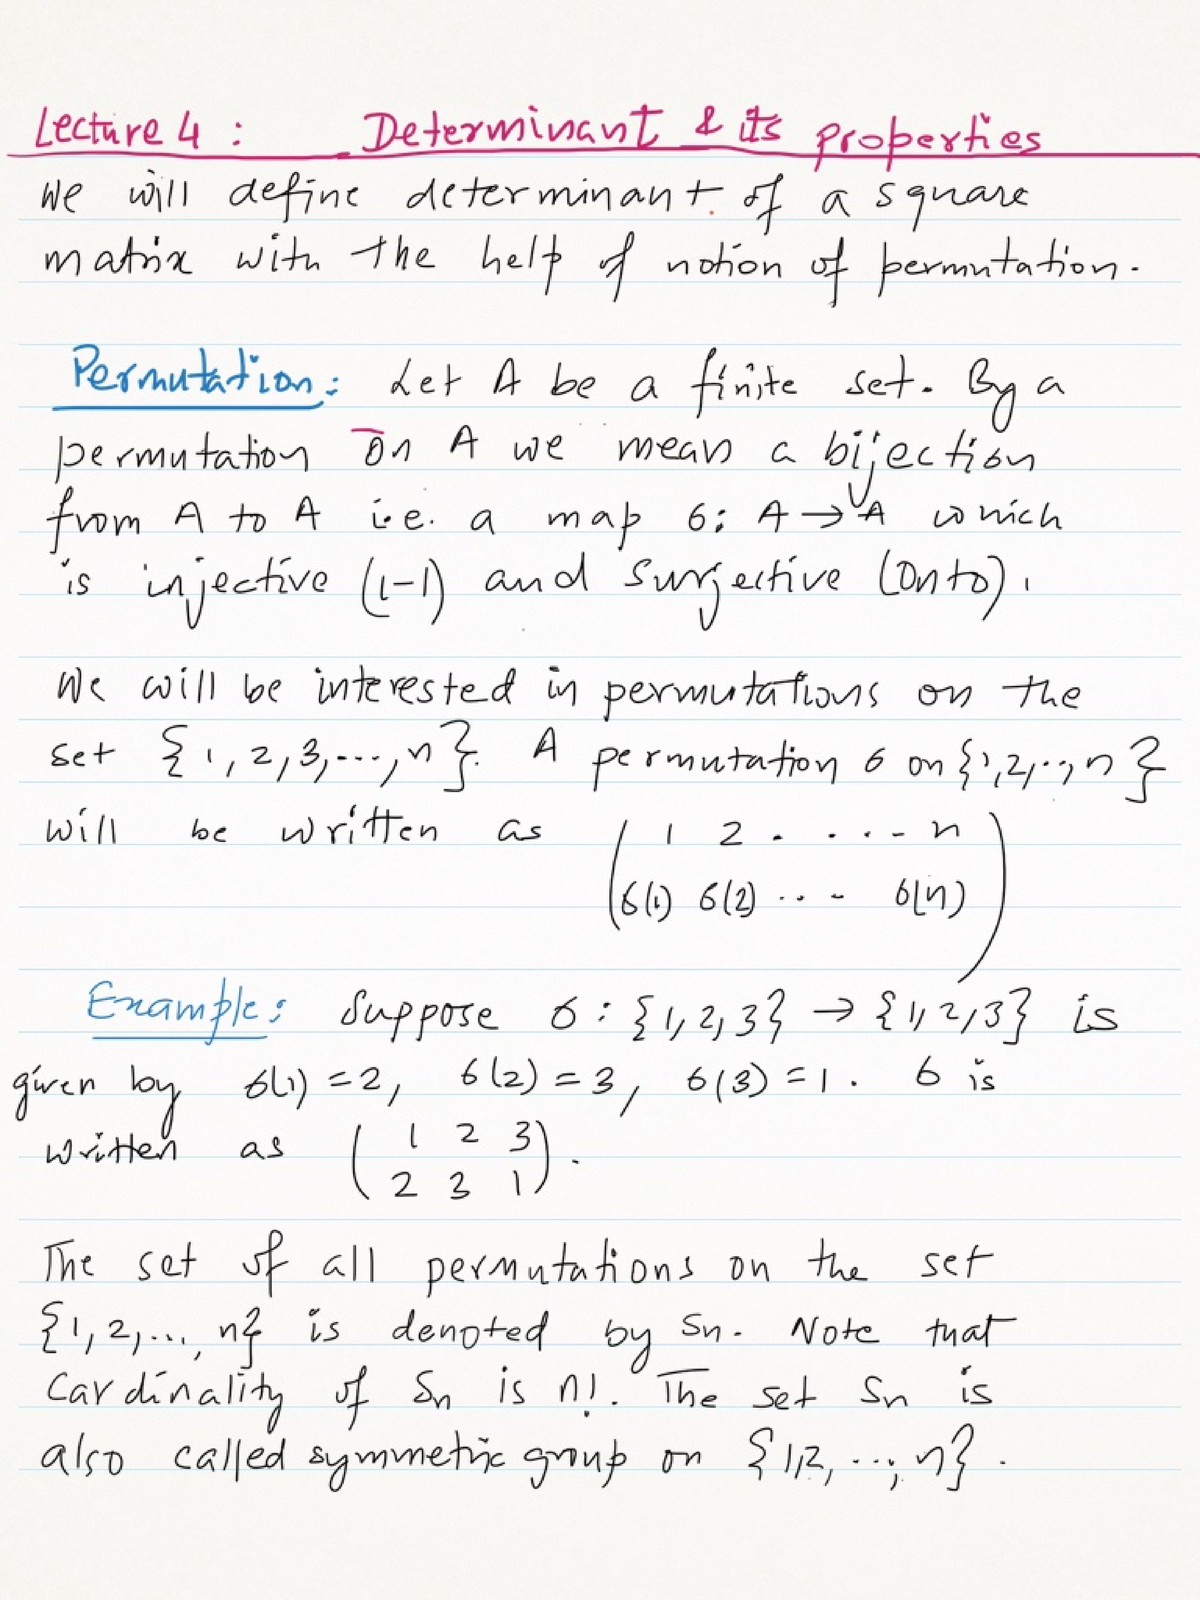 Lecture 4 : Determinant & its properties
We will define determinant of a square
matrix with the help of notion of permutation.
Permutation: Let A be a finite set. By a
permutation on A we mean a bijection
from A to A i.e. a map σ: A → A which
is injective (1-1) and surjective (onto).
We will be interested in permutations on the
set {1, 2, 3, ..., n}. A permutation σ on {1,2,..,n}
will be written as ( 1 2 . . . . - n
σ(1) σ(2) ... - σ(n) )
Example: Suppose σ : {1,2,3} → {1,2,3} is
given by σ(1) = 2, σ(2) = 3, σ(3) = 1. σ is
written as ( 1 2 3
2 3 1 ).
The set of all permutations on the set
{1, 2, ..., n} is denoted by Sn. Note that
Cardinality of Sn is n!. The set Sn is
also called symmetric group on {1,2, ..., n}.